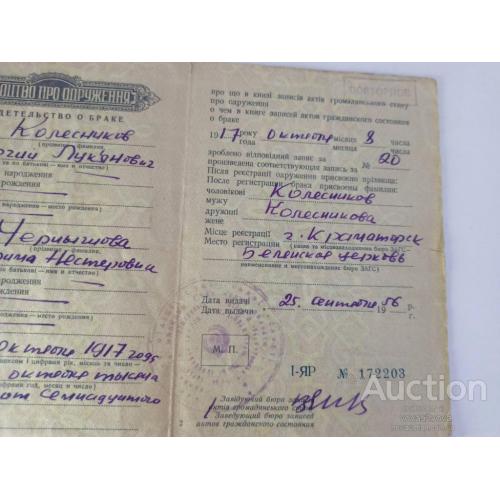 ОЦТВО ПРО ОДРУЖЕННЯ
ДЕТЕЛЬСТВО О БРАКЕ
Колесников
(прізвище) фамилия
Луканович
та по батькові — имя и отчество)
народження
рождения
народження — место рождения)
Чернышова
(прізвище) фамилия
Нестеровна
батькові — имя и отчество)
народження
рождения
народження — место рождения)
октября 1917 года
словом і цифрами рік, місяць та число)
октября тысяча
цифрами год, месяц и число)
Семнадцатого
про що в книзі записів актів громадянського стану
про одруження
о чем в книге записей актов гражданского состояния
о браке
1917 року октября місяця 8 числа
года месяца числа
зроблено відповідний запис за
произведена соответствующая запись за № 20
Після реєстрації одруження присвоєно прізвища:
После регистрации брака присвоены фамилии:
чоловікові Колесников
мужу
дружині Колесникова
жене
Місце реєстрації г. Краматорск
Место регистрации (назва та місцезнаходження бюро ЗАГС)
церковь
наименование и местонахождение бюро ЗАГС
Дата видачі 25 сентября 56 р.
Дата выдачи 19 г.
М. П.
I-ЯР № 172203
Завідуючий бюро записів
актів громадянського стану
Заведующий бюро записей
актов гражданского состояния
2
Auction